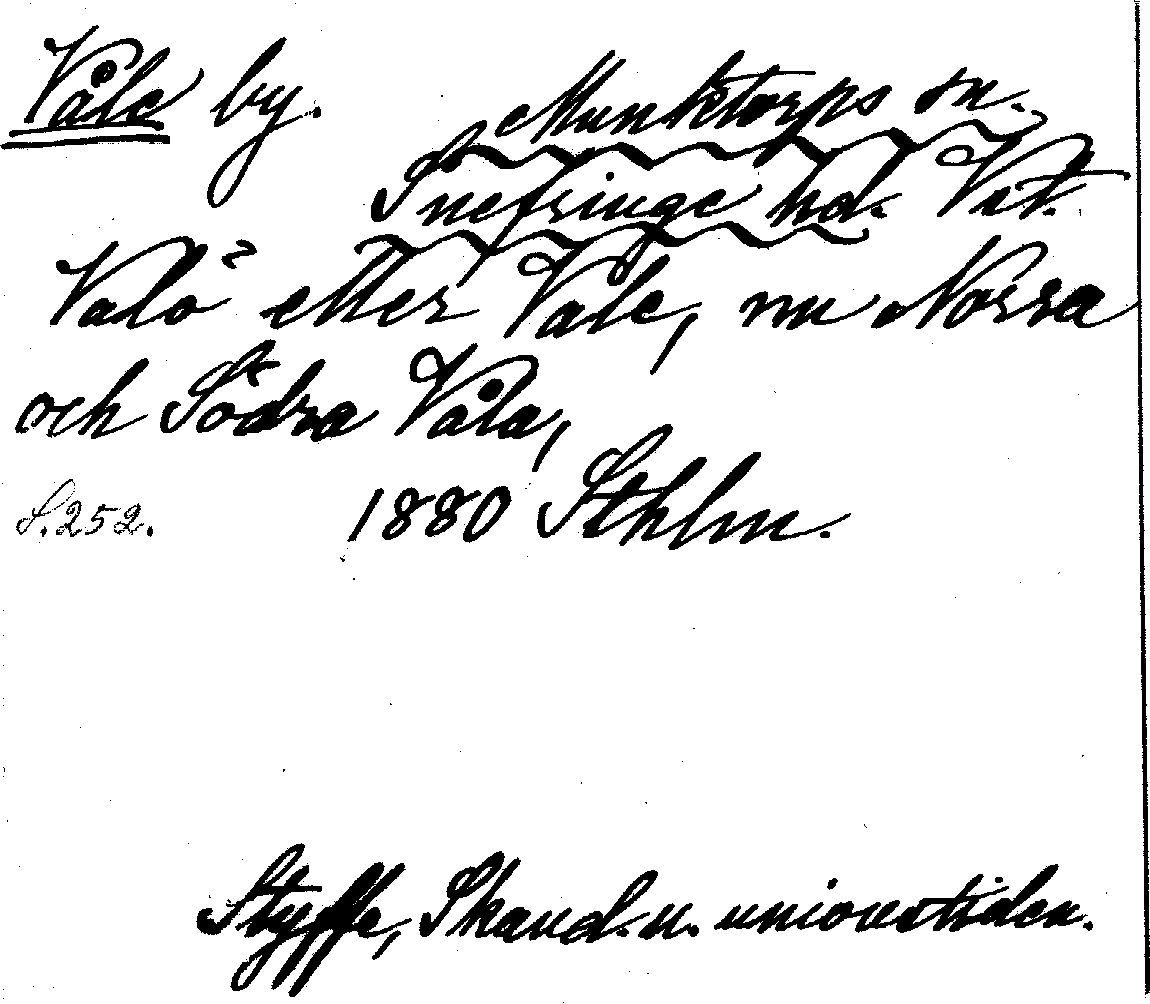 Våle by.
Munktorps sn.
Snefringe hd. Vst.
Valö eller Vale, nu Norra
och Södra Våla,
S. 252. 1880 Sthlm.
Styffe, Skand. u. unionstiden.